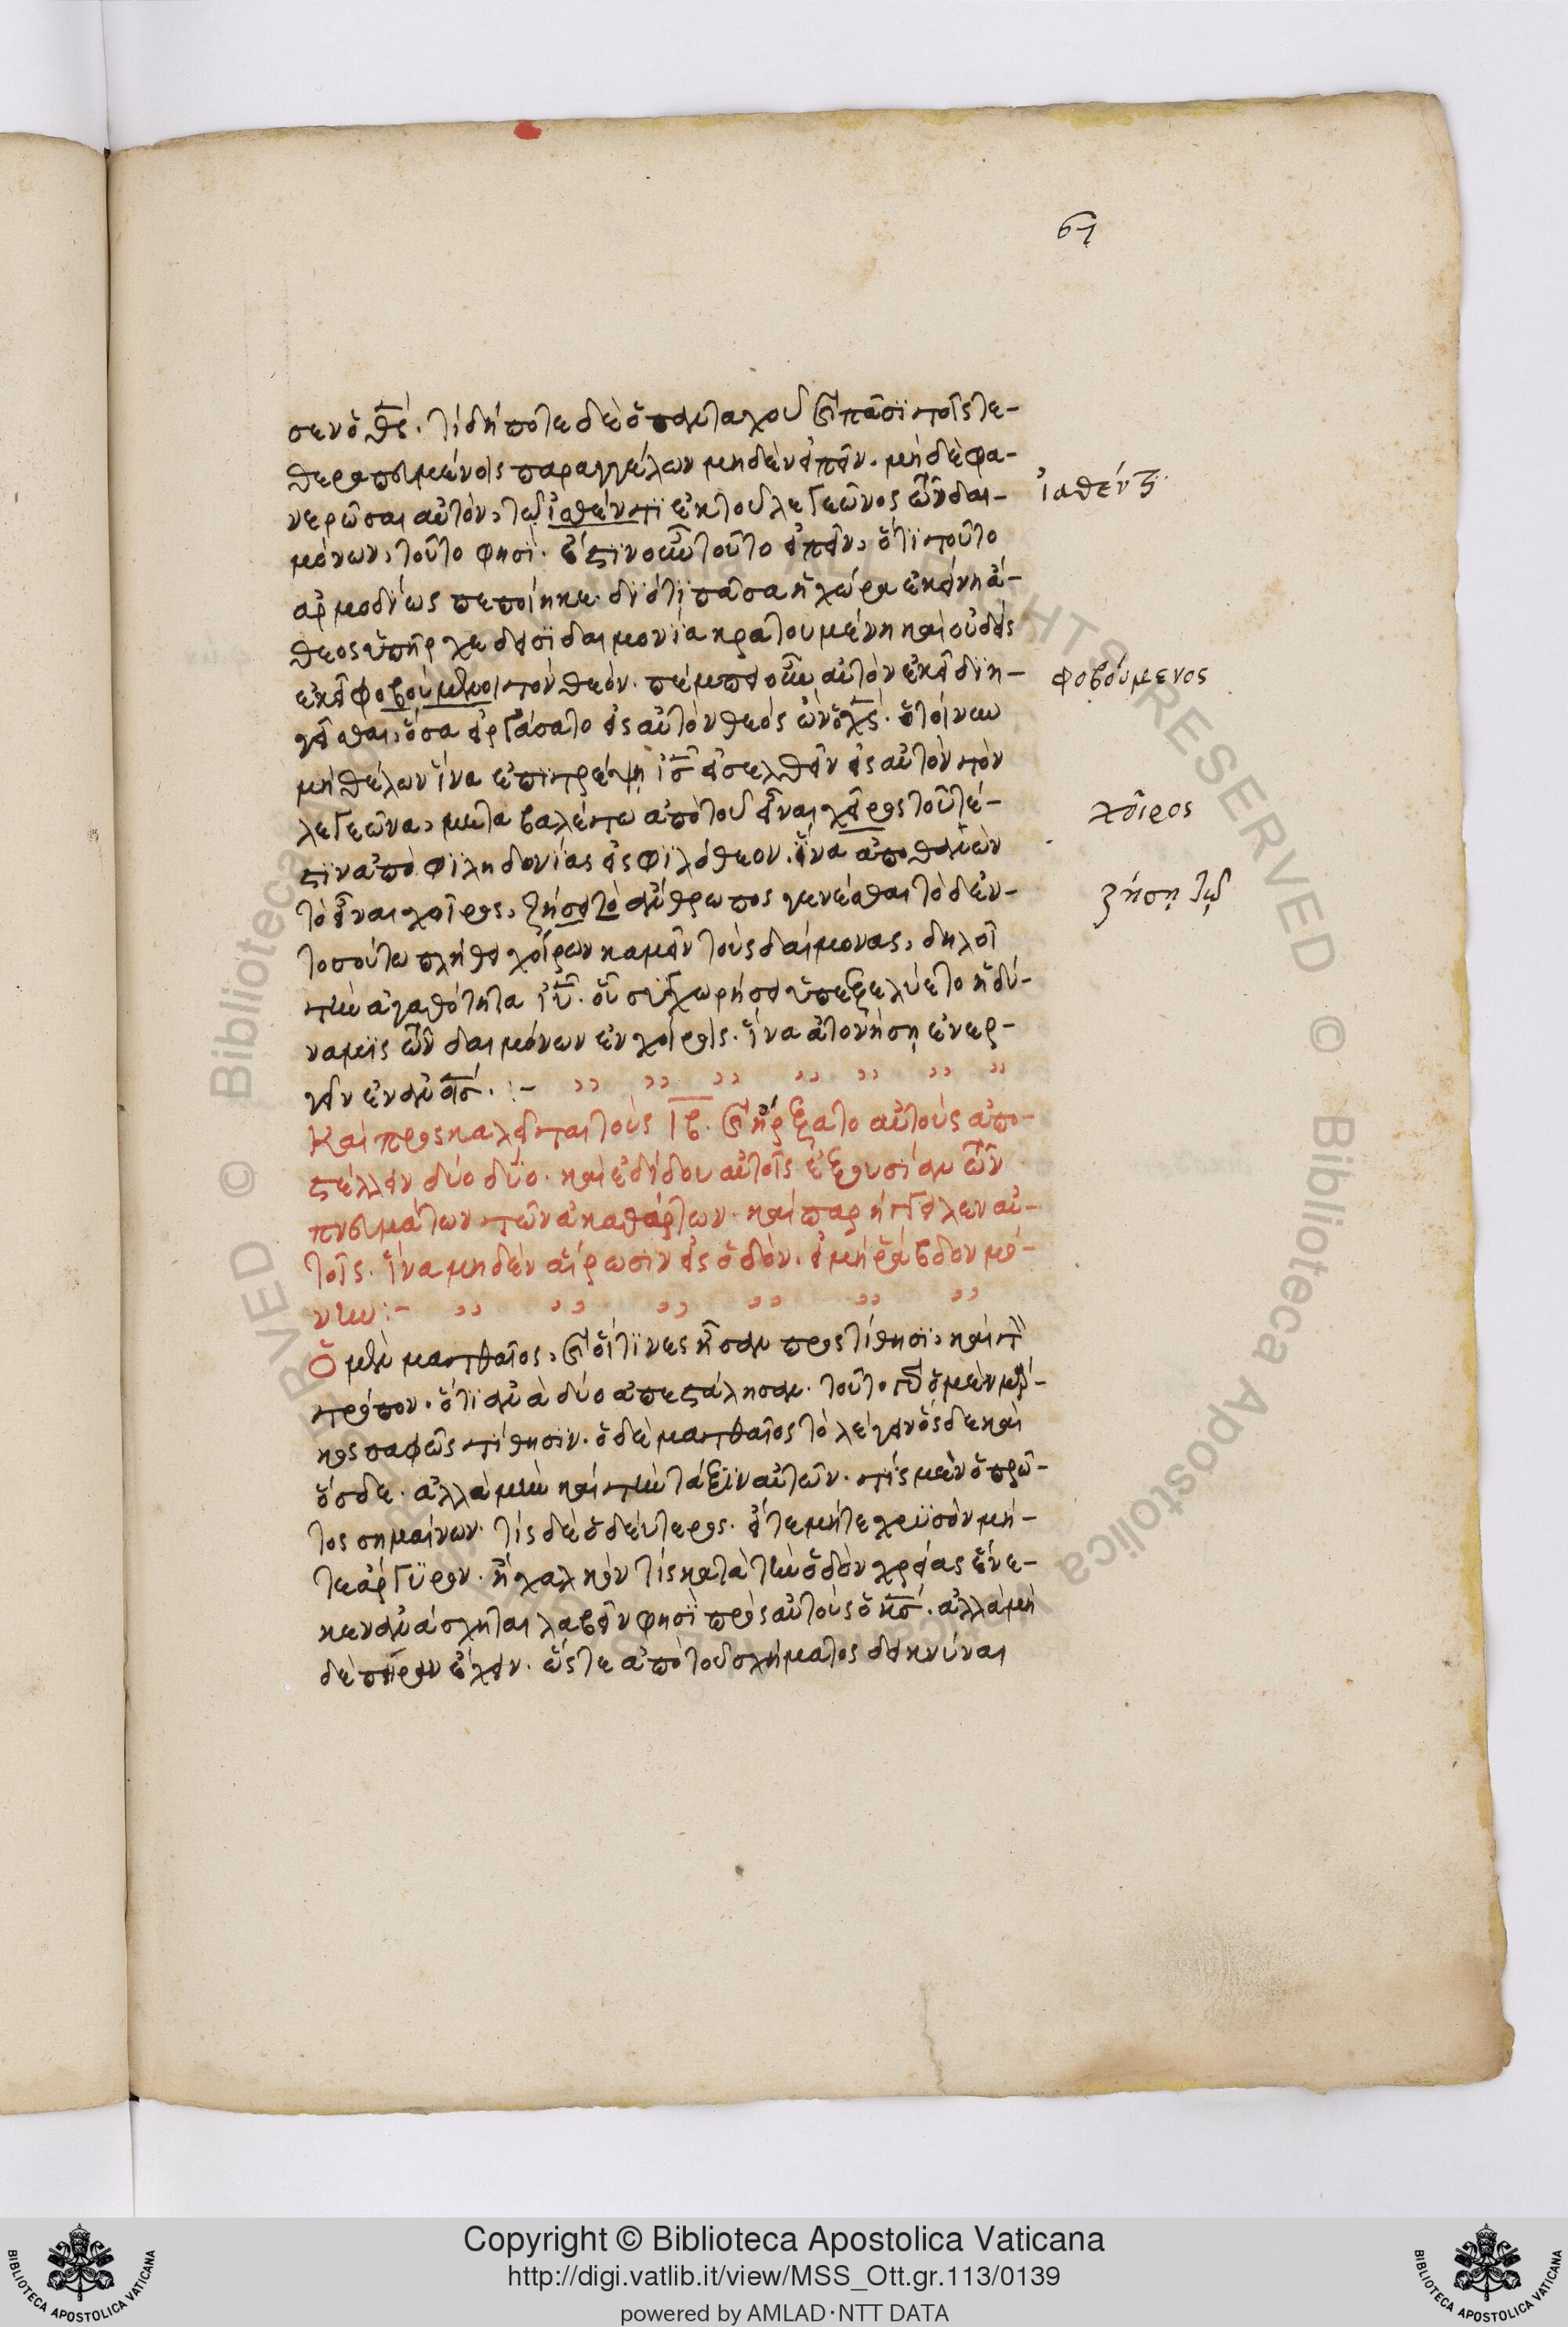 67
σεν ὁ θς. τί δήποτε δὲ ὁ πανταχοῦ καὶ πᾶσϊ τοῖς τε-
θεραπευμένοις παραγγέλων μηδὲν εἰπεῖν. μὴ δὲ φα-
νερῶσαι αὐτὸν, τῷ ἰαθέντϊ ἐκ τοῦ λεγεῶνος τῶν δαι-
μόνων, τοῦτο φησϊ. ἔστϊν οὖν τοῦτο εἰπεῖν, ὅτϊ τοῦτο
αρμοδίως πεποίηκε. διότϊ πᾶσα ἡ χώρα ἐκείνη ἄ-
θεος ὑπῆρχε δεισϊδαιμονία κρατουμένη καὶ οὐδεὶς
ἐκεῖ φοβούμενοι τὸν θεόν. πέμπει οὖν αὐτὸν ἐκεῖ διη-
γεῖσθαι, ὅσα εἰργάσατο εἰς αὐτὸν θεὸς ὢν ὁ χς. ὁ τοίνυν
μὴ θέλων ἵνα ἐπϊτρέψῃ ις εἰσελθεῖν εἰς αὐτὸν τὸν
λεγεῶνα, μεταβαλέτω ἀπὸ τοῦ εἶναι χεῖρος τουτέ-
στϊν ἀπὸ φϊληδονίας εἰς φϊλόθεον. ἵνα ἀποθανὼν
τὸ εἶναι χοῖρος, ζήσει τὸ ἄνθρωπος γενέσθαι τὸ δὲ ἐν-
τοσούτω πλήθει χοίρων καμεῖν τοὺς δαίμονας, δηλοῖ
τὴν ἀγαθότητα ιυ. οὗ συγχωρήσει ὑπεξελύετο ἡ δύ-
ναμϊς τῶν δαιμόνων ἐν χοίροις. ἵνα ἀτονήσῃ ἐνερ-
γεῖν ἐν ανοις. :- ,, ,, ,, ,, ,, ,, ,,
Καὶ προσκαλεῖται τοὺς ιβ. καὶ ἤρξατο αὐτοὺς ἀπο-
στέλλειν δύο δύο. καὶ ἐδίδου αὐτοῖς ἐξουσίαν τῶν
πνευμάτων τῶν ἀκαθάρτων. καὶ παρήγγειλεν αὐ-
τοῖς. ἵνα μηδὲν αἴρωσϊν εἰς ὁδόν. εἰ μὴ ῥάβδον μό-
νην :- ,, ,, ,, ,, ,, ,,
Ὁ μὲν ματθαῖος, καὶ οἵτϊνες ἦσαν προστίθησϊ, καὶ τὸν
τρόπον. ὅτϊ ἀνὰ δύο ἀπεστάλησαν. τοῦτο δὲ ὁ μὲν μάρ-
κος σαφῶς τίθησϊν. ὁ δὲ ματθαῖος τὸ λέγειν ὅς δε καὶ
ὅσδε. ἀλλὰ μὴν καὶ τὴν τάξϊν αὐτῶν. τίς μὲν ὁ πρῶ-
τος σημαίνων. τίς δὲ ὁ δεύτερος. εἴτε μήτε χρυσὸν μή-
τε ἄργυρον. ἢ χαλκόν τίς κατὰ τὴν ὁδὸν χρείας ἕνε-
κεν ἀνάσχηται λαβεῖν φησϊ πρὸς αὐτοὺς ὁ κς. ἀλλὰ μὴ
δὲ πήραν ἔχειν. ὥστε ἀπὸ τοῦ σχήματος δεικνύναι
ἰαθέντϊ
φοβούμενος
χοῖρος
ζήσῃ τῷ
Copyright © Biblioteca Apostolica Vaticana
http://digi.vatlib.it/view/MSS_Ott.gr.113/0139
powered by AMLAD·NTT DATA
BIBLIOTECA APOSTOLICA VATICANA
BIBLIOTECA APOSTOLICA VATICANA